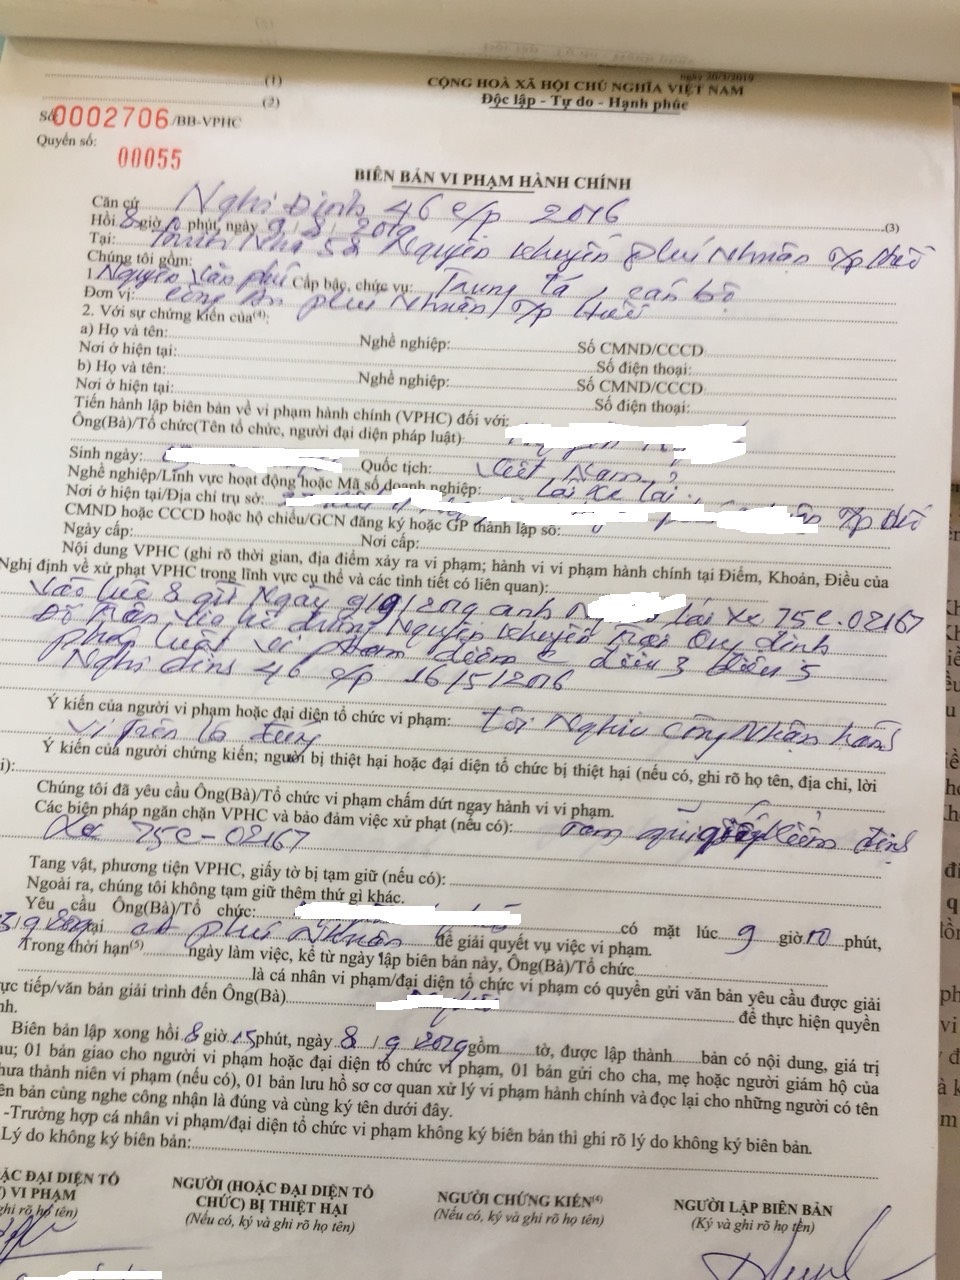 ngày 20/3/2019
(1)
CỘNG HOÀ XÃ HỘI CHỦ NGHĨA VIỆT NAM
(2)
Độc lập - Tự do - Hạnh phúc
Số 0002706 /BB-VPHC
Quyển số: 00055
BIÊN BẢN VI PHẠM HÀNH CHÍNH
Căn cứ Nghị Định 46 c/p 2016 (3)
Hồi 8 giờ 0 phút, ngày 9/8/2019
Tại: Trước Nhà 58 Nguyễn Khuyến phú Nhuận T/p Huế
Chúng tôi gồm:
1. Nguyễn Văn phú Cấp bậc, chức vụ: Trung tá cán bộ
Đơn vị: Công An phú Nhuận T/p Huế
2. Với sự chứng kiến của(4):
a) Họ và tên: Nghề nghiệp: Số CMND/CCCD
Nơi ở hiện tại: Số điện thoại:
b) Họ và tên: Nghề nghiệp: Số CMND/CCCD
Nơi ở hiện tại: Số điện thoại:
Tiến hành lập biên bản về vi phạm hành chính (VPHC) đối với:
Ông(Bà)/Tổ chức(Tên tổ chức, người đại diện pháp luật)
Sinh ngày: Quốc tịch: Việt Nam
Nghề nghiệp/Lĩnh vực hoạt động hoặc Mã số doanh nghiệp: Lái xe tải
Nơi ở hiện tại/Địa chỉ trụ sở: T/p Huế
CMND hoặc CCCD hoặc hộ chiếu/GCN đăng ký hoặc GP thành lập số:
Ngày cấp: Nơi cấp:
Nội dung VPHC (ghi rõ thời gian, địa điểm xảy ra vi phạm; hành vi vi phạm hành chính tại Điểm, Khoản, Điều của
Nghị định về xử phạt VPHC trong lĩnh vực cụ thể và các tình tiết có liên quan):
Vào lúc 8 giờ Ngày 9/9/2019 anh N lái xe 75C-02167
Đỗ trên vỉa hè đường Nguyễn Khuyến trái quy định
pháp luật vi phạm điểm điều 3 điều 5
Nghị định 46 c/p 16/5/2016
Ý kiến của người vi phạm hoặc đại diện tổ chức vi phạm: tôi Nghiêu công Nhận hành
vi trên là đúng
Ý kiến của người chứng kiến; người bị thiệt hại hoặc đại diện tổ chức bị thiệt hại (nếu có, ghi rõ họ tên, địa chỉ, lời
i):
Chúng tôi đã yêu cầu Ông(Bà)/Tổ chức vi phạm chấm dứt ngay hành vi vi phạm.
Các biện pháp ngăn chặn VPHC và bảo đảm việc xử phạt (nếu có): Tạm giữ giấy kiểm định
xe 75C-02167
Tang vật, phương tiện VPHC, giấy tờ bị tạm giữ (nếu có):
Ngoài ra, chúng tôi không tạm giữ thêm thứ gì khác.
Yêu cầu Ông(Bà)/Tổ chức: có mặt lúc 9 giờ 10 phút,
tại CA phú Nhuận để giải quyết vụ việc vi phạm.
Trong thời hạn(5) ngày làm việc, kể từ ngày lập biên bản này, Ông(Bà)/Tổ chức
là cá nhân vi phạm/đại diện tổ chức vi phạm có quyền gửi văn bản yêu cầu được giải
ực tiếp/văn bản giải trình đến Ông(Bà) để thực hiện quyền
nh.
Biên bản lập xong hồi 8 giờ 15 phút, ngày 8/9/2019 gồm tờ, được lập thành bản có nội dung, giá trị
au; 01 bản giao cho người vi phạm hoặc đại diện tổ chức vi phạm, 01 bản gửi cho cha, mẹ hoặc người giám hộ của
hưa thành niên vi phạm (nếu có), 01 bản lưu hồ sơ cơ quan xử lý vi phạm hành chính và đọc lại cho những người có tên
ên bản cùng nghe công nhận là đúng và cùng ký tên dưới đây.
-Trường hợp cá nhân vi phạm/đại diện tổ chức vi phạm không ký biên bản thì ghi rõ lý do không ký biên bản.
Lý do không ký biên bản:
ẶC ĐẠI DIỆN TỔ NGƯỜI (HOẶC ĐẠI DIỆN TỔ NGƯỜI CHỨNG KIẾN(4) NGƯỜI LẬP BIÊN BẢN
) VI PHẠM CHỨC) BỊ THIỆT HẠI (Nếu có, ký và ghi rõ họ tên) (Ký và ghi rõ họ tên)
ghi rõ họ tên) (Nếu có, ký và ghi rõ họ tên)